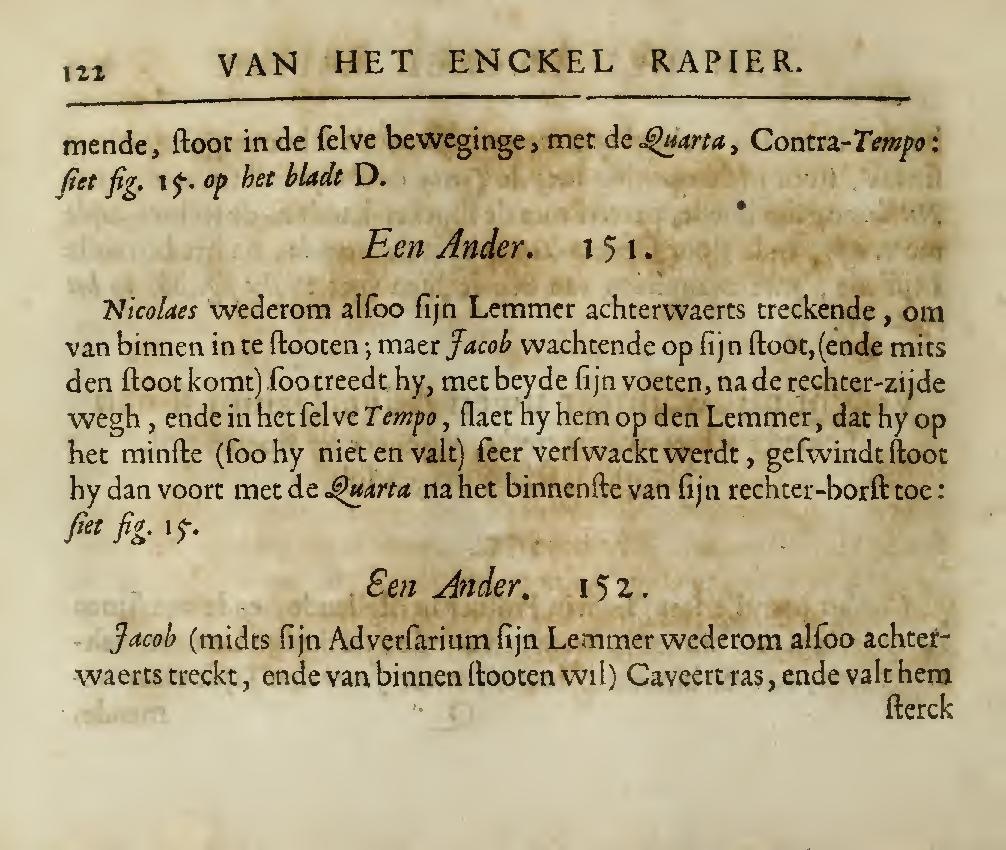 122 VAN HET ENCKEL RAPIER.
mende, ſtoot in de ſelve beweginge, met de Quarta, Contra-Tempo:
ſiet fig. 15. op het bladt D.
Een Ander. 151.
Nicolaes wederom alſoo ſijn Lemmer achterwaerts treckende, om
van binnen in te ſtooten; maer Jacob wachtende op ſijn ſtoot, (ende mits
den ſtoot komt) ſoo treedt hy, met beyde ſijn voeten, na de rechter-zijde
wegh, ende in het ſelve Tempo, ſlaet hy hem op den Lemmer, dat hy op
het minſte (ſoo hy niet en valt) ſeer verſwackt werdt, geſwindt ſtoot
hy dan voort met de Quarta na het binnenſte van ſijn rechter-borſt toe:
ſiet fig. 15.
Een Ander. 152.
Jacob (midts ſijn Adverſarium ſijn Lemmer wederom alſoo achter-
waerts treckt, ende van binnen ſtooten wil) Caveert ras, ende valt hem
ſterck